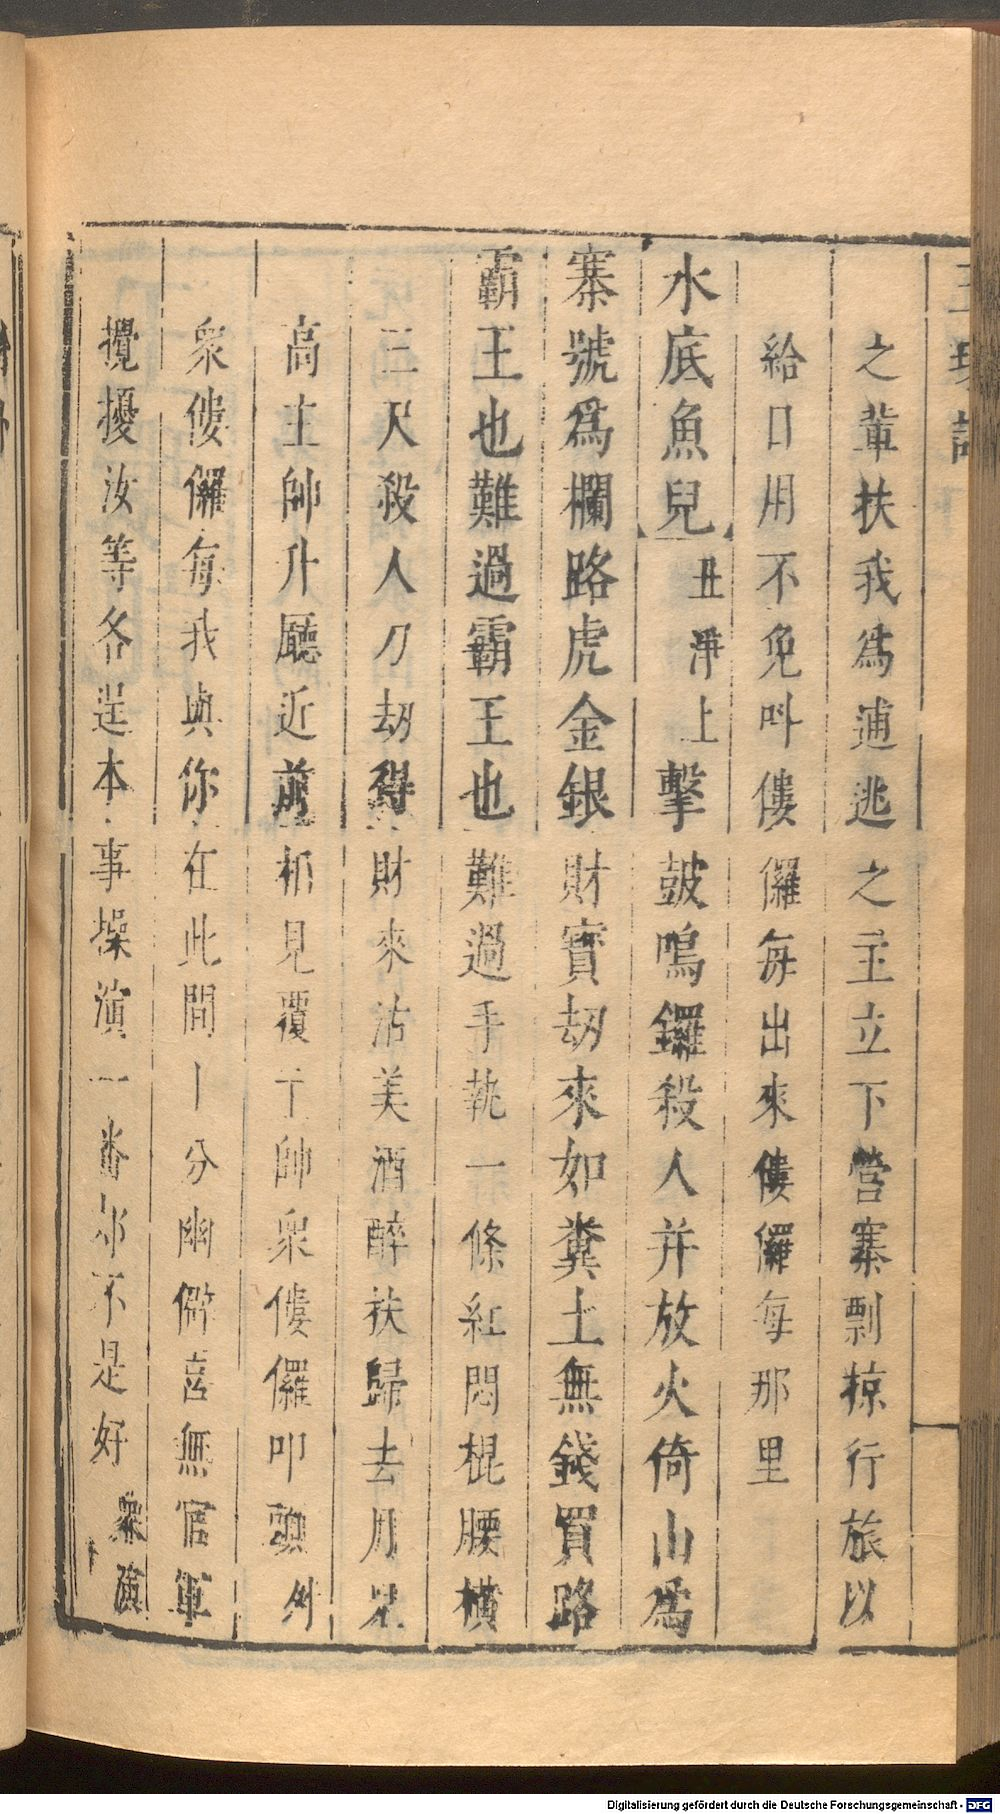 之輩扶我爲逋逃之主立下營寨剽掠行旅以
給口用不免叫僂儸每出來僂儸每那里
水底魚兒 丑淨上 擊鼓鳴鑼殺人并放火倚山爲
寨號爲欄路虎金銀財寶劫來如糞土無錢買路
霸王也難過霸王也難過手執一條紅悶棍腰橫
三尺殺人刀劫得財來沽美酒醉扶歸去月
高主帥升廳近前相見覆主帥衆僂儸叩頭 外
衆僂儸每我與你在此間十分幽僻喜無官軍
攪擾汝等各逞本事操演一番却不是好 衆演
Digitalisierung gefördert durch die Deutsche Forschungsgemeinschaft - DFG